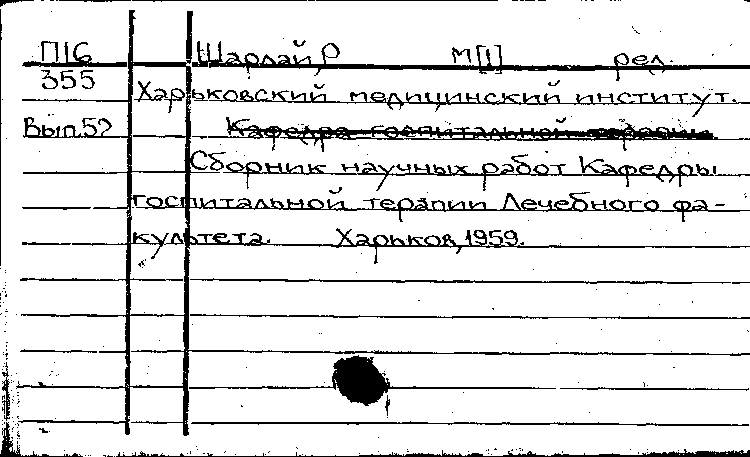 П16 Шарлай, Р М[I] ред.
355
Харьковский медицинский институт.
Вып.52 Кафедра госпитальной терапии
Сборник научных работ Кафедры
госпитальной терапии Лечебного фа-
культета. Харьков, 1959.